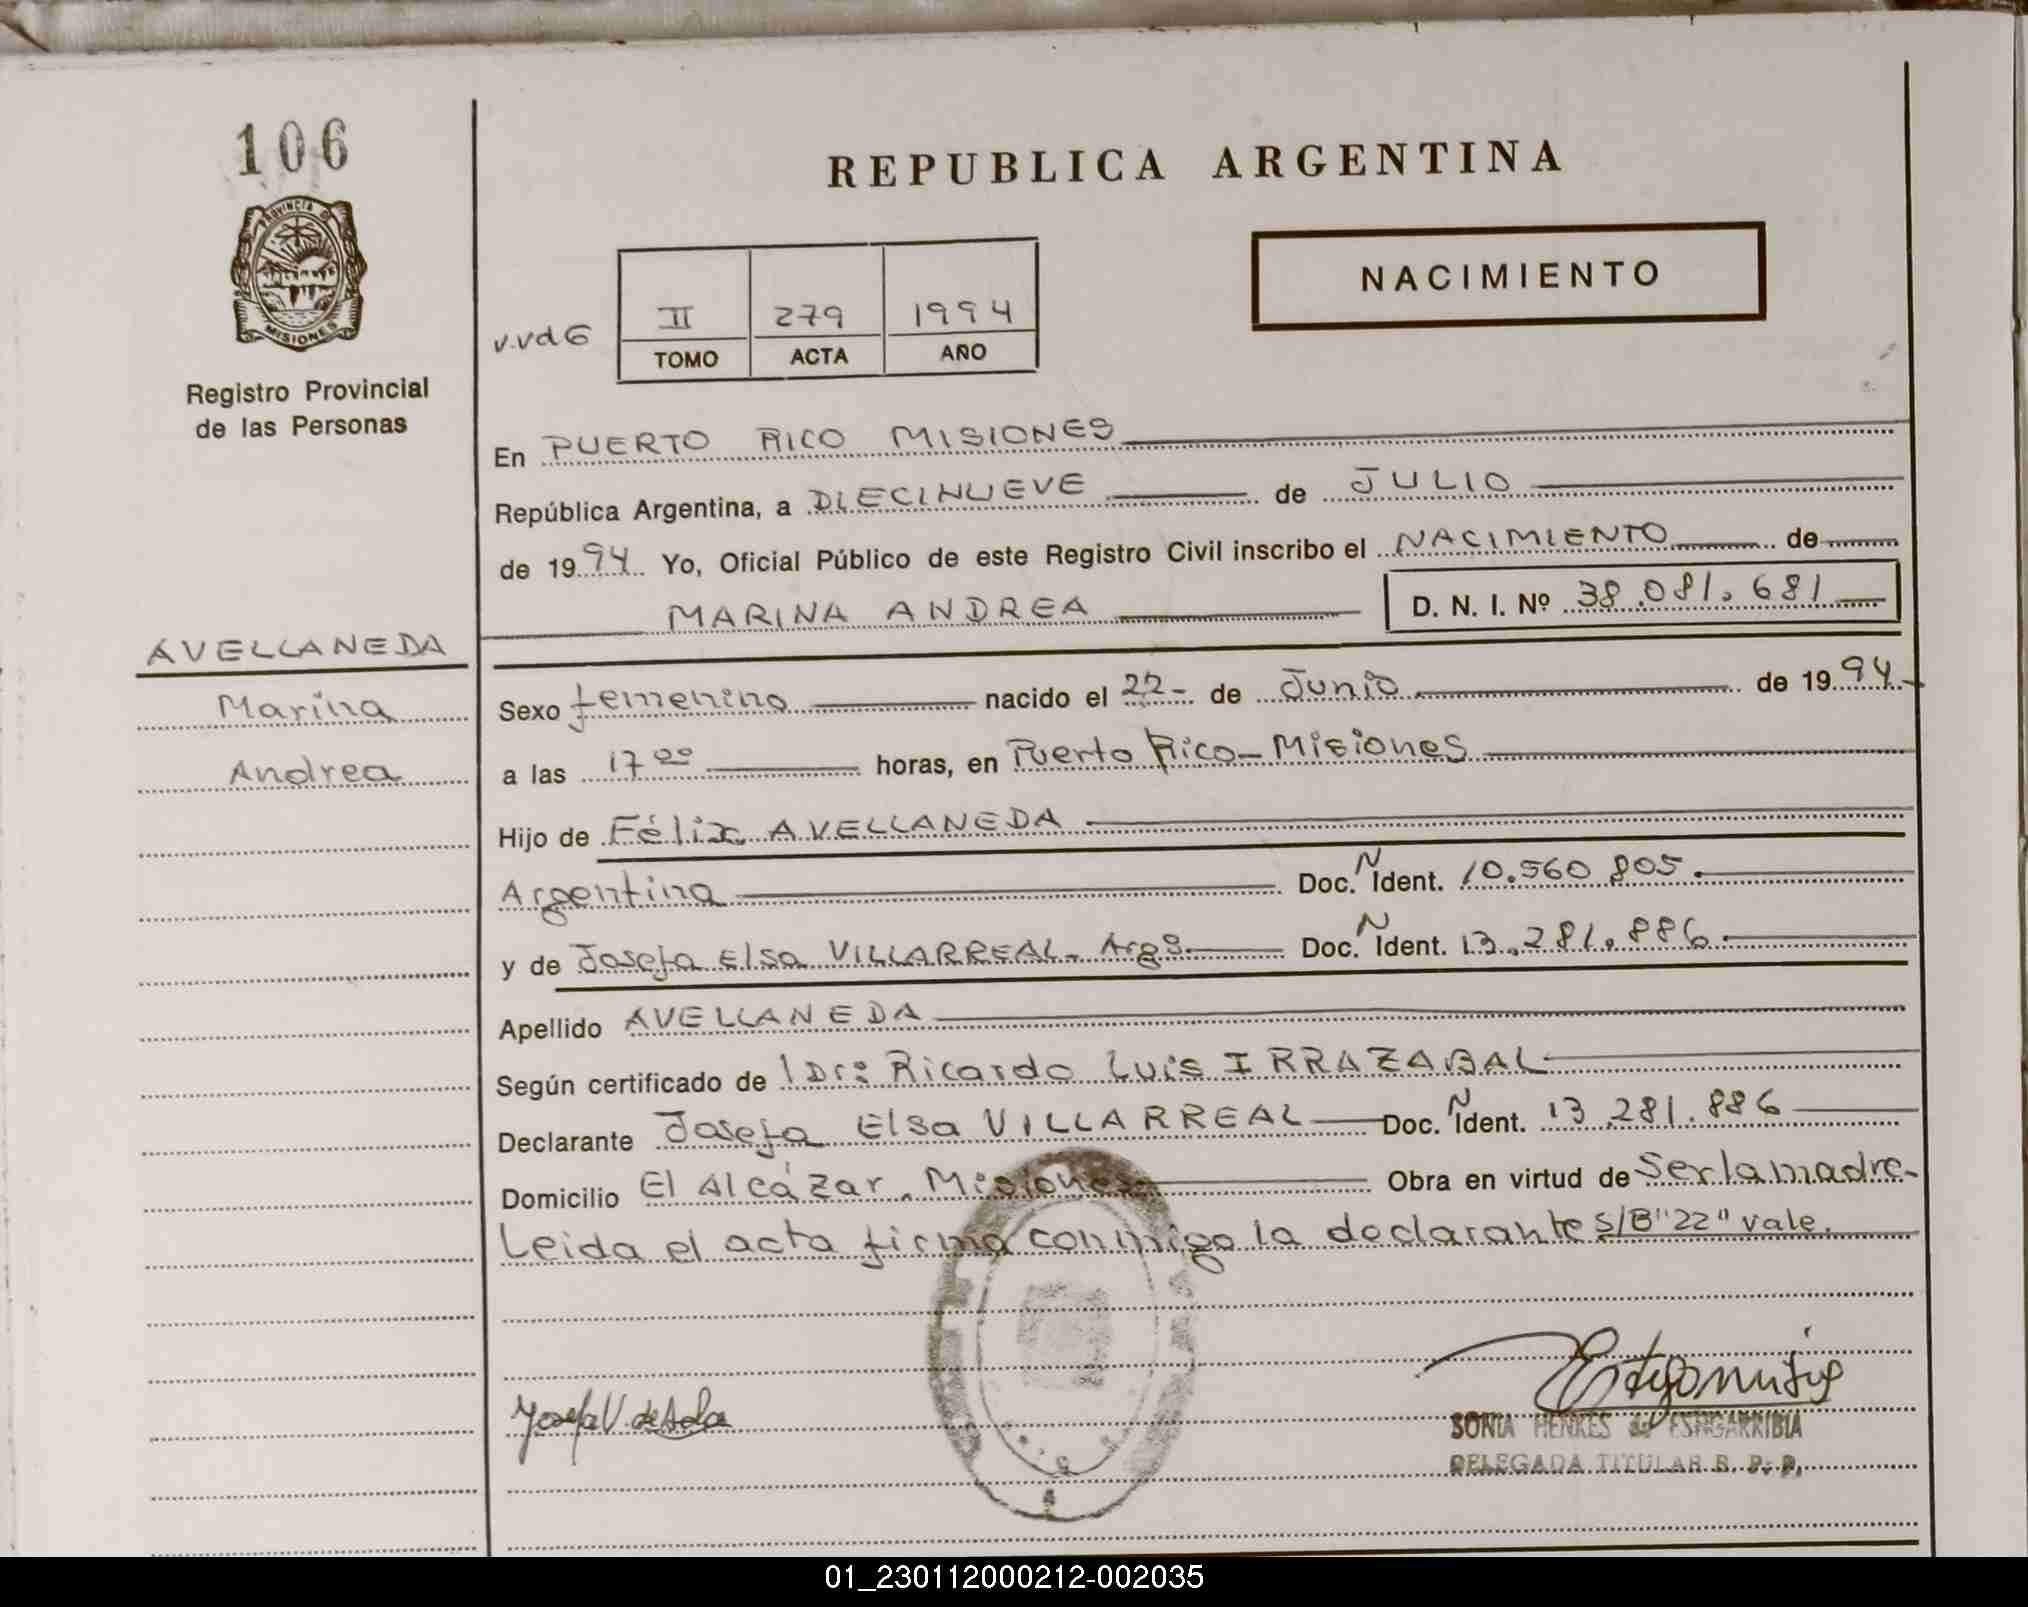 106
PROVINCIA DE
MISIONES
Registro Provincial
de las Personas
REPUBLICA ARGENTINA
NACIMIENTO
v.vd6
II 279 1994
TOMO ACTA AÑO
En PUERTO RICO MISIONES
República Argentina, a DIECINUEVE de JULIO
de 1994 Yo, Oficial Público de este Registro Civil inscribo el NACIMIENTO de
MARINA ANDREA D. N. I. Nº 38.081.681
AVELLANEDA
Marina
Andrea
Sexo femenino nacido el 22- de Junio de 1994-
a las 17 00 horas, en Puerto Rico-Misiones
Hijo de Félix AVELLANEDA
Argentina Doc. N Ident. 10.560.805.
y de Josefa Elsa VILLARREAL- Arg. Doc. N Ident. 13.281.886.
Apellido AVELLANEDA
Según certificado de Dr: Ricardo Luis IRRAZABAL
Declarante Josefa Elsa VILLARREAL Doc. N Ident. 13.281.886
Domicilio El Alcázar. Misiones Obra en virtud de Ser la madre-
Leida el acta firma conmigo la declarante S/B"22" vale.
Josefa V. de
SONIA HENKES de ESTIGARRIBIA
DELEGADA TITULAR R. P. P.
01_230112000212-002035